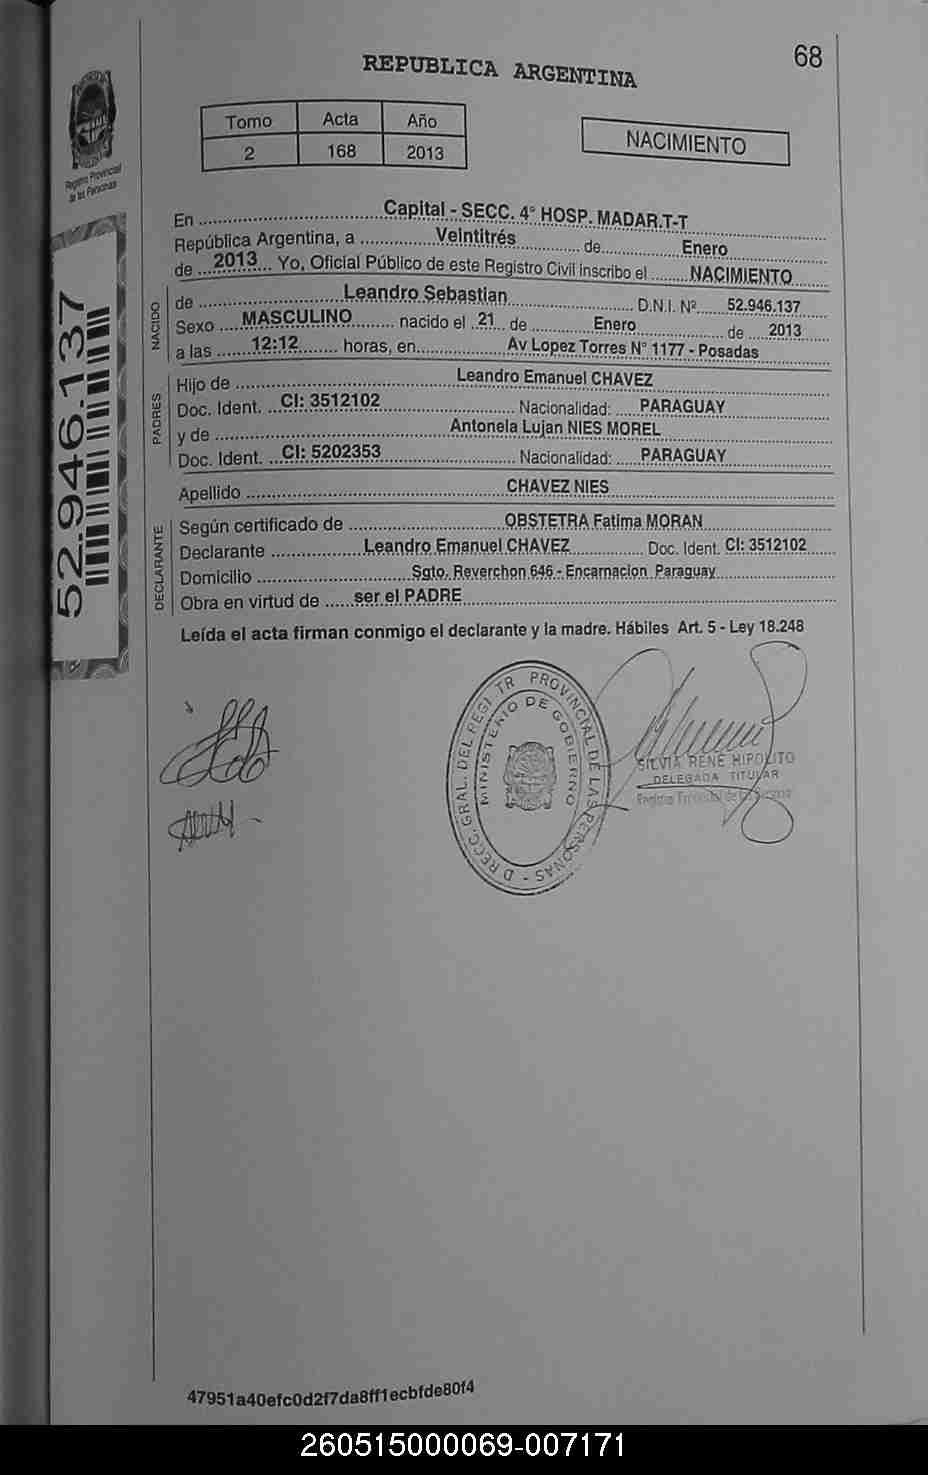 68
REPUBLICA ARGENTINA
Tomo Acta Año
2 168 2013
NACIMIENTO
Registro Provincial
de las Personas
52.946.137
En Capital - SECC. 4° HOSP. MADAR.T-T
República Argentina, a Veintitrés de Enero
de 2013 Yo, Oficial Público de este Registro Civil inscribo el NACIMIENTO
NACIDO
de Leandro Sebastian D.N.I. Nº 52.946.137
Sexo MASCULINO nacido el 21 de Enero de 2013
a las 12:12 horas, en Av Lopez Torres N° 1177 - Posadas
PADRES
Hijo de Leandro Emanuel CHAVEZ
Doc. Ident. CI: 3512102 Nacionalidad: PARAGUAY
y de Antonela Lujan NIES MOREL
Doc. Ident. CI: 5202353 Nacionalidad: PARAGUAY
Apellido CHAVEZ NIES
DECLARANTE
Según certificado de OBSTETRA Fatima MORAN
Declarante Leandro Emanuel CHAVEZ Doc. Ident. CI: 3512102
Domicilio Sgto. Reverchon 646 - Encarnacion Paraguay
Obra en virtud de ser el PADRE
Leída el acta firman conmigo el declarante y la madre. Hábiles Art. 5 - Ley 18.248
PROVINCIAL DE LAS PERSONAS
MINISTERIO DE GOBIERNO
SILVIA RENE HIPOLITO
DELEGADA TITULAR
Registro Provincial de
47951a40efc0d2f7da8ff1ecbfde80f4
260515000069-007171